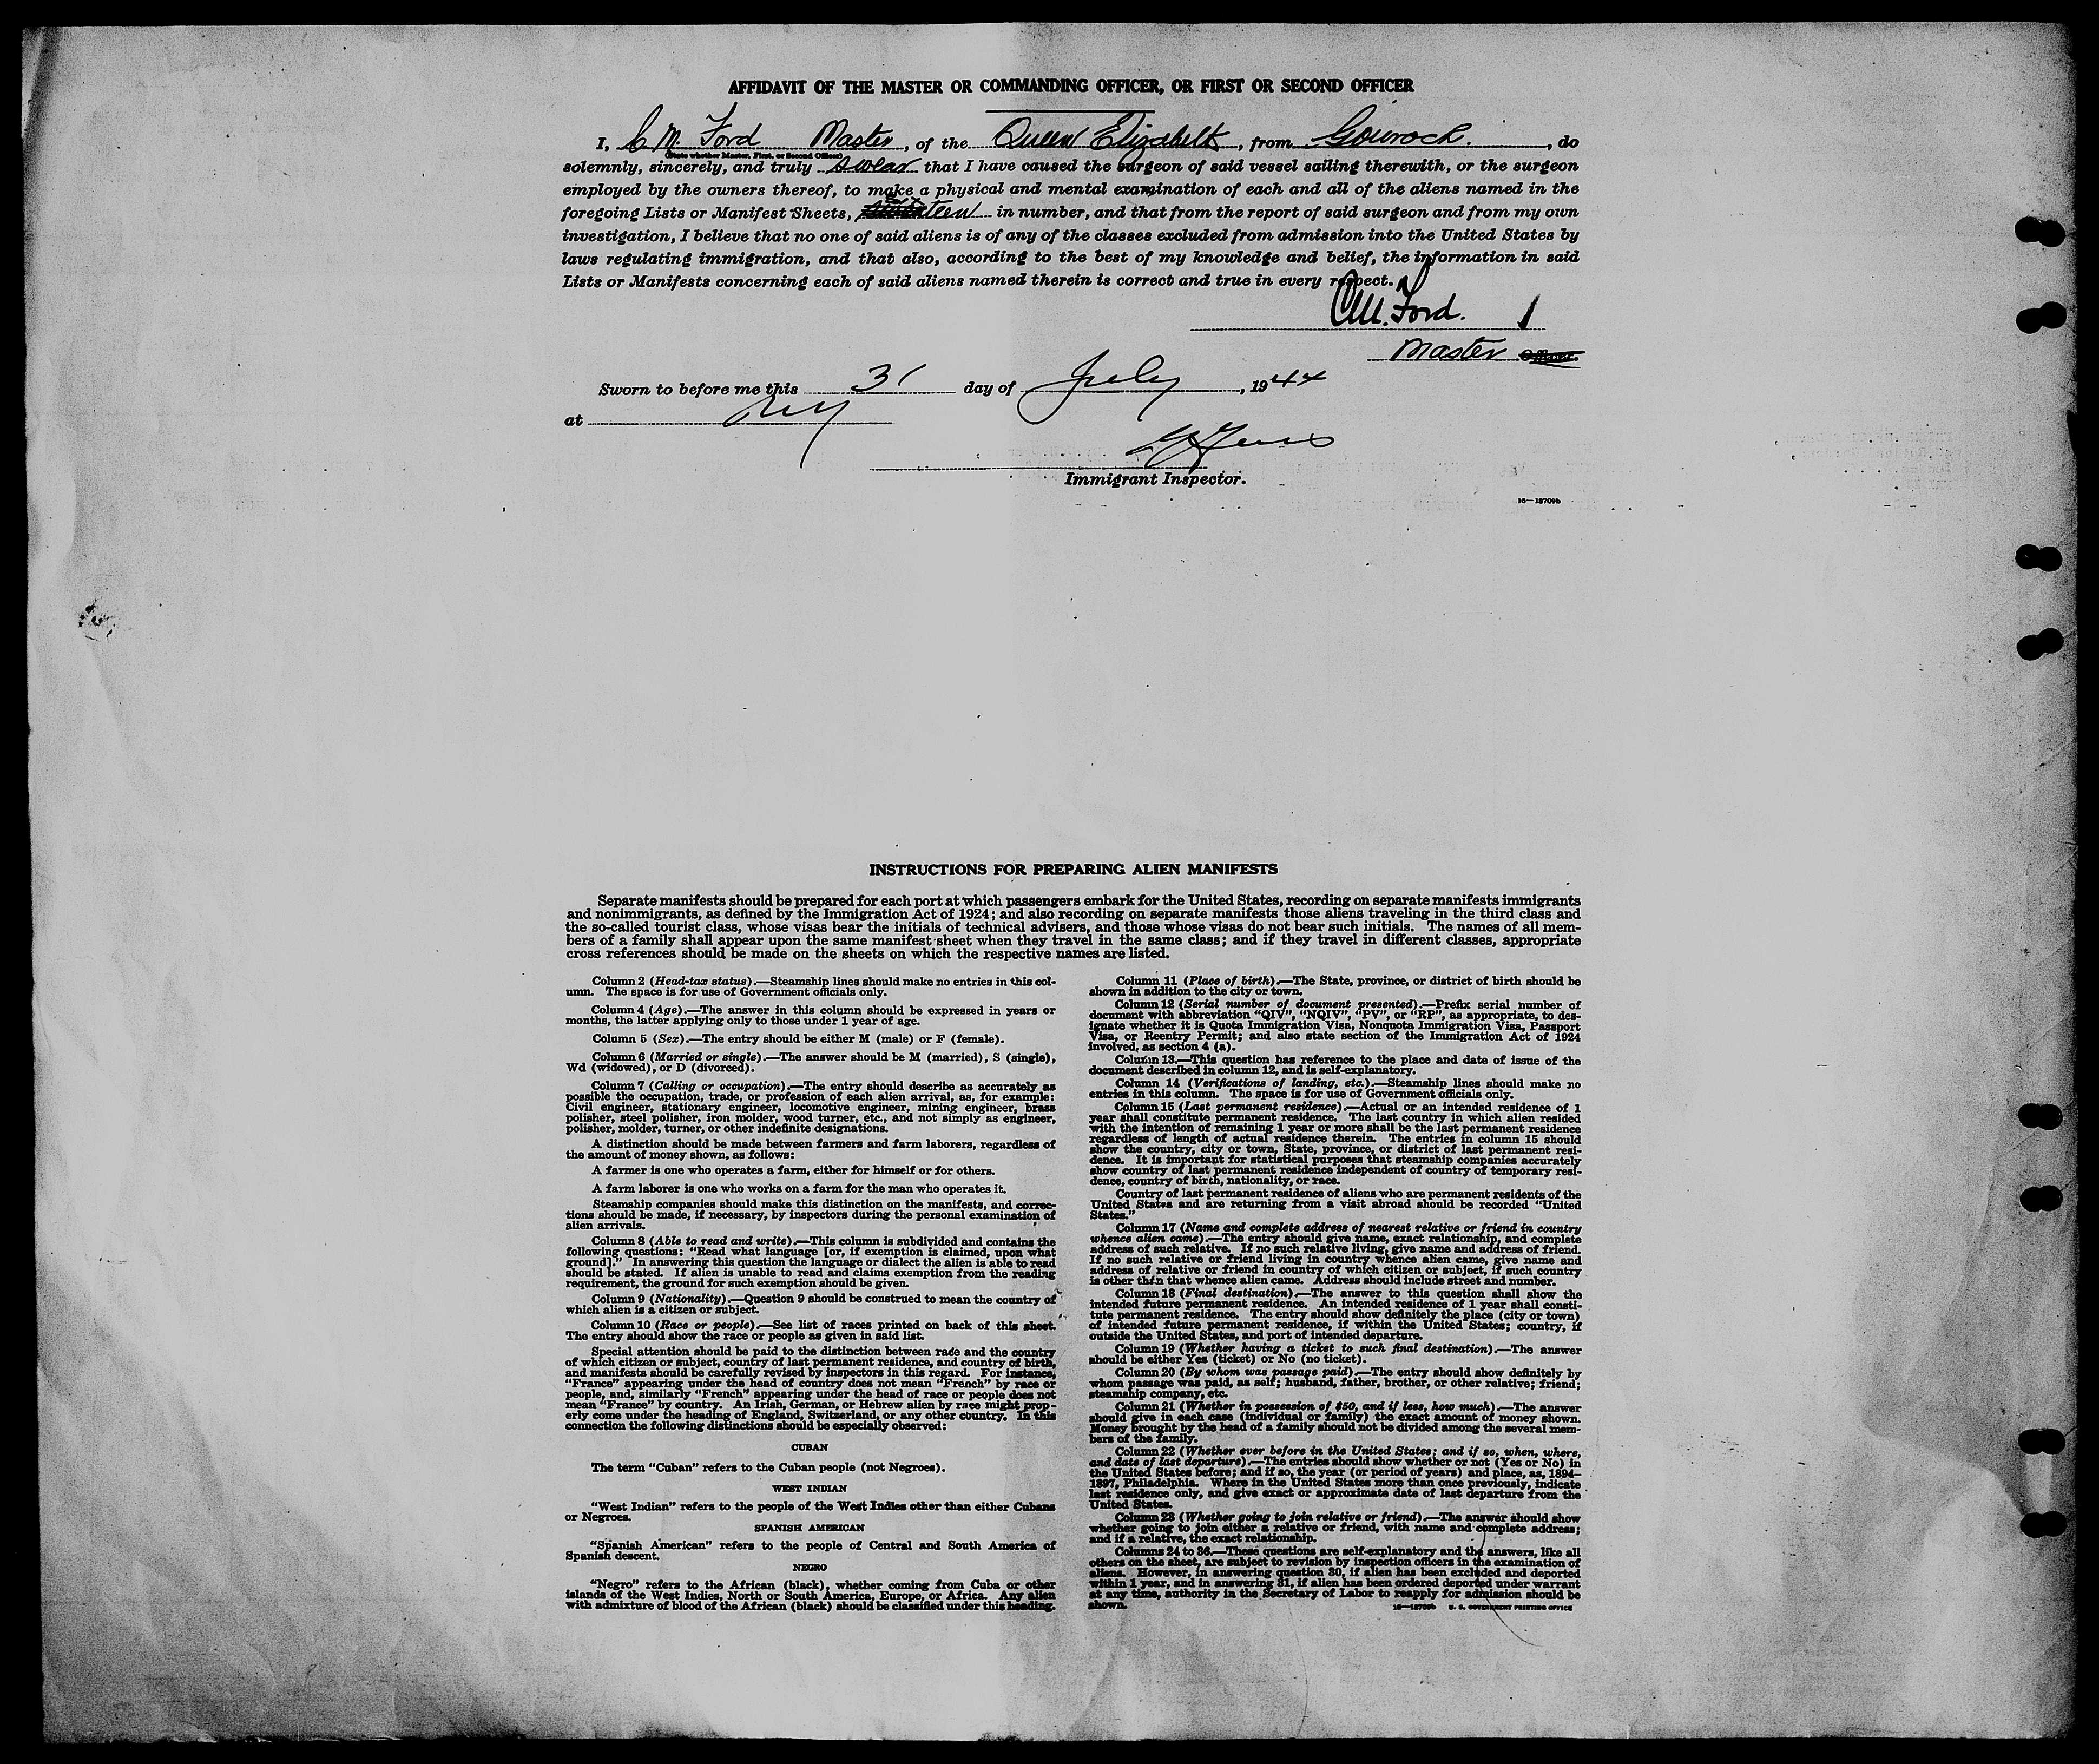 AFFIDAVIT OF THE MASTER OR COMMANDING OFFICER, OR FIRST OR SECOND OFFICER
I, C M. Ford Master, of the Queen Elizabeth, from Gourock., do
(State whether Master, First, or Second Officer)
solemnly, sincerely, and truly swear that I have caused the surgeon of said vessel sailing therewith, or the surgeon
employed by the owners thereof, to make a physical and mental examination of each and all of the aliens named in the
foregoing Lists or Manifest Sheets, teen in number, and that from the report of said surgeon and from my own
investigation, I believe that no one of said aliens is of any of the classes excluded from admission into the United States by
laws regulating immigration, and that also, according to the best of my knowledge and belief, the information in said
Lists or Manifests concerning each of said aliens named therein is correct and true in every respect.
C.M. Ford.
Master Officer.
Sworn to before me this 31 day of July, 1944
at NY
Immigrant Inspector.
16—18709b
INSTRUCTIONS FOR PREPARING ALIEN MANIFESTS
Separate manifests should be prepared for each port at which passengers embark for the United States, recording on separate manifests immigrants
and nonimmigrants, as defined by the Immigration Act of 1924; and also recording on separate manifests those aliens traveling in the third class and
the so-called tourist class, whose visas bear the initials of technical advisers, and those whose visas do not bear such initials. The names of all mem-
bers of a family shall appear upon the same manifest sheet when they travel in the same class; and if they travel in different classes, appropriate
cross references should be made on the sheets on which the respective names are listed.
Column 2 (Head-tax status).—Steamship lines should make no entries in this col-
umn. The space is for use of Government officials only.
Column 4 (Age).—The answer in this column should be expressed in years or
months, the latter applying only to those under 1 year of age.
Column 5 (Sex).—The entry should be either M (male) or F (female).
Column 6 (Married or single).—The answer should be M (married), S (single),
Wd (widowed), or D (divorced).
Column 7 (Calling or occupation).—The entry should describe as accurately as
possible the occupation, trade, or profession of each alien arrival, as, for example:
Civil engineer, stationary engineer, locomotive engineer, mining engineer, brass
polisher, steel polisher, iron molder, wood turner, etc., and not simply as engineer,
polisher, molder, turner, or other indefinite designations.
A distinction should be made between farmers and farm laborers, regardless of
the amount of money shown, as follows:
A farmer is one who operates a farm, either for himself or for others.
A farm laborer is one who works on a farm for the man who operates it.
Steamship companies should make this distinction on the manifests, and correc-
tions should be made, if necessary, by inspectors during the personal examination of
alien arrivals.
Column 8 (Able to read and write).—This column is subdivided and contains the
following questions: "Read what language [or, if exemption is claimed, upon what
ground]." In answering this question the language or dialect the alien is able to read
should be stated. If alien is unable to read and claims exemption from the reading
requirement, the ground for such exemption should be given.
Column 9 (Nationality).—Question 9 should be construed to mean the country of
which alien is a citizen or subject.
Column 10 (Race or people).—See list of races printed on back of this sheet.
The entry should show the race or people as given in said list.
Special attention should be paid to the distinction between race and the country
of which citizen or subject, country of last permanent residence, and country of birth,
and manifests should be carefully revised by inspectors in this regard. For instance,
"France" appearing under the head of country does not mean "French" by race or
people, and, similarly "French" appearing under the head of race or people does not
mean "France" by country. An Irish, German, or Hebrew alien by race might prop-
erly come under the heading of England, Switzerland, or any other country. In this
connection the following distinctions should be especially observed:
CUBAN
The term "Cuban" refers to the Cuban people (not Negroes).
WEST INDIAN
"West Indian" refers to the people of the West Indies other than either Cubans
or Negroes.
SPANISH AMERICAN
"Spanish American" refers to the people of Central and South America of
Spanish descent.
NEGRO
"Negro" refers to the African (black), whether coming from Cuba or other
islands of the West Indies, North or South America, Europe, or Africa. Any alien
with admixture of blood of the African (black) should be classified under this heading.
Column 11 (Place of birth).—The State, province, or district of birth should be
shown in addition to the city or town.
Column 12 (Serial number of document presented).—Prefix serial number of
document with abbreviation "QIV", "NQIV", "PV", or "RP", as appropriate, to des-
ignate whether it is Quota Immigration Visa, Nonquota Immigration Visa, Passport
Visa, or Reentry Permit; and also state section of the Immigration Act of 1924
involved, as section 4 (a).
Column 13.—This question has reference to the place and date of issue of the
document described in column 12, and is self-explanatory.
Column 14 (Verifications of landing, etc.).—Steamship lines should make no
entries in this column. The space is for use of Government officials only.
Column 15 (Last permanent residence).—Actual or an intended residence of 1
year shall constitute permanent residence. The last country in which alien resided
with the intention of remaining 1 year or more shall be the last permanent residence
regardless of length of actual residence therein. The entries in column 15 should
show the country, city or town, State, province, or district of last permanent resi-
dence. It is important for statistical purposes that steamship companies accurately
show country of last permanent residence independent of country of temporary resi-
dence, country of birth, nationality, or race.
Country of last permanent residence of aliens who are permanent residents of the
United States and are returning from a visit abroad should be recorded "United
States."
Column 17 (Name and complete address of nearest relative or friend in country
whence alien came).—The entry should give name, exact relationship, and complete
address of such relative. If no such relative living, give name and address of friend.
If no such relative or friend living in country whence alien came, give name and
address of relative or friend in country of which citizen or subject, if such country
is other than that whence alien came. Address should include street and number.
Column 18 (Final destination).—The answer to this question shall show the
intended future permanent residence. An intended residence of 1 year shall consti-
tute permanent residence. The entry should show definitely the place (city or town)
of intended future permanent residence, if within the United States; country, if
outside the United States, and port of intended departure.
Column 19 (Whether having a ticket to such final destination).—The answer
should be either Yes (ticket) or No (no ticket).
Column 20 (By whom was passage paid).—The entry should show definitely by
whom passage was paid, as self; husband, father, brother, or other relative; friend;
steamship company, etc.
Column 21 (Whether in possession of $50, and if less, how much).—The answer
should give in each case (individual or family) the exact amount of money shown.
Money brought by the head of a family should not be divided among the several mem-
bers of the family.
Column 22 (Whether ever before in the United States; and if so, when, where,
and date of last departure).—The entries should show whether or not (Yes or No) in
the United States before; and if so, the year (or period of years) and place, as, 1894–
1897, Philadelphia. Where in the United States more than once previously, indicate
last residence only, and give exact or approximate date of last departure from the
United States.
Column 23 (Whether going to join relative or friend).—The answer should show
whether going to join either a relative or friend, with name and complete address;
and if a relative, the exact relationship.
Columns 24 to 36.—These questions are self-explanatory and the answers, like all
others on the sheet, are subject to revision by inspection officers in the examination of
aliens. However, in answering question 30, if alien has been excluded and deported
within 1 year, and in answering 31, if alien has been ordered deported under warrant
at any time, authority in the Secretary of Labor to reapply for admission should be
shown.
16—18709b U. S. GOVERNMENT PRINTING OFFICE